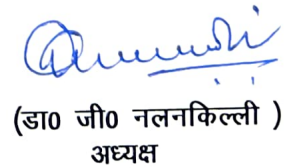 (डा0 जी0 नलनकिल्ली )
अध्यक्ष